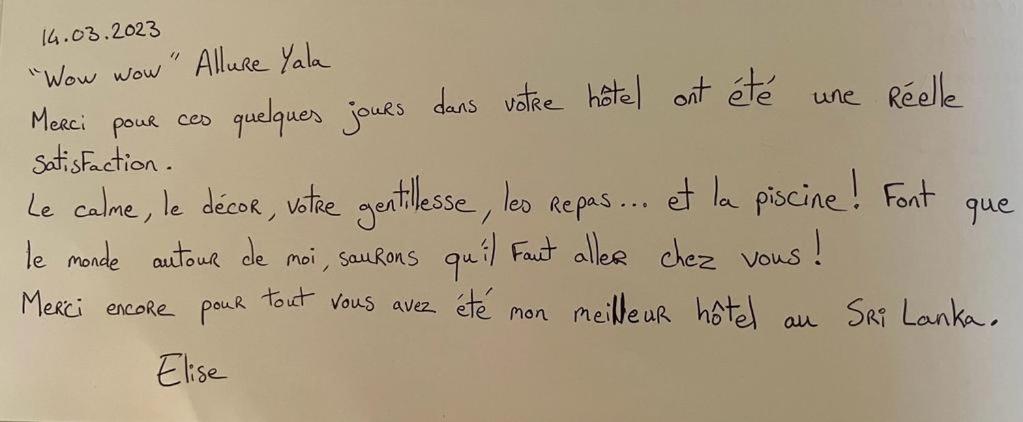 14.03.2023
"Wow wow" Allure Yala
Merci pour ces quelques jours dans votre hôtel ont été une réelle
satisfaction.
Le calme, le décor, votre gentillesse, les repas... et la piscine! Font que
le monde autour de moi, saurons qu'il faut aller chez vous!
Merci encore pour tout vous avez été mon meilleur hôtel au Sri Lanka.
Elise